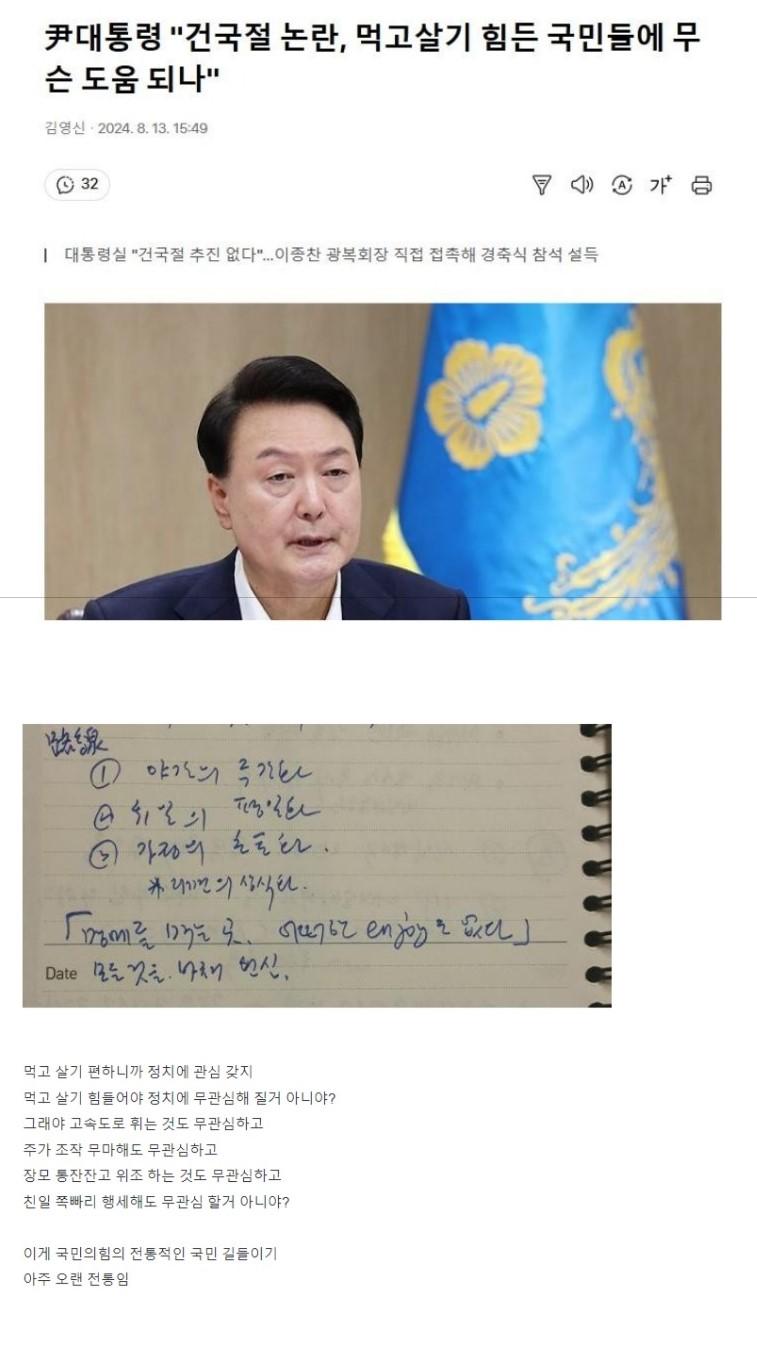 尹대통령 "건국절 논란, 먹고살기 힘든 국민들에 무
슨 도움 되나"
김영신 · 2024. 8. 13. 15:49
32
가+
대통령실 "건국절 추진 없다"…이종찬 광복회장 직접 접촉해 경축식 참석 설득
路線
① 야간의 주간화
② 휴일의 평일화
③ 가정의 초토화.
※ 라면의 상식화.
「명예를 먹는 곳. 어떠한 enjoy도 없다」
Date 모든 것을 바쳐 헌신.
먹고 살기 편하니까 정치에 관심 갖지
먹고 살기 힘들어야 정치에 무관심해 질거 아니야?
그래야 고속도로 휘는 것도 무관심하고
주가 조작 무마해도 무관심하고
장모 통잔잔고 위조 하는 것도 무관심하고
친일 쪽빠리 행세해도 무관심 할거 아니야?
이게 국민의힘의 전통적인 국민 길들이기
아주 오랜 전통임